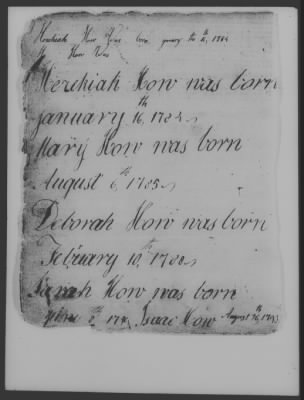 Hezekiah How Was born 1784
How Was
Hezekiah How was born
January 16th, 1784
Mary How was born
August 6th, 1785
Deborah How was born
February 10th, 1788
Sarah How was born
Isaac How August